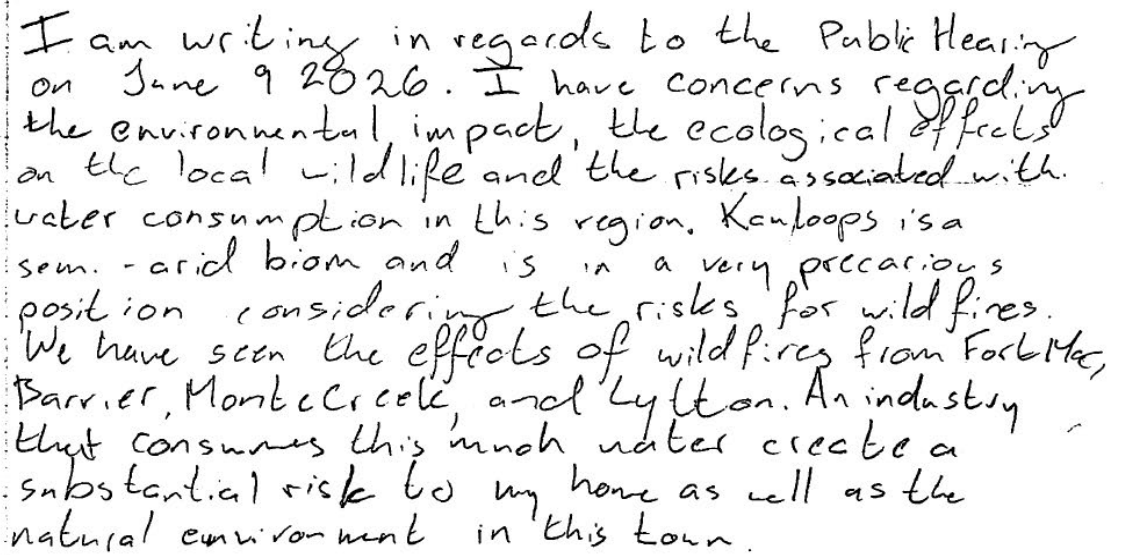 I am writing in regards to the Public Hearing
on June 9 2026. I have concerns regarding
the environmental impact, the ecological effects
on the local wildlife and the risks associated with
water consumption in this region. Kamloops is a
semi-arid biom and is in a very precarious
position considering the risks for wildfires.
We have seen the effects of wildfires from Fort Mac,
Barrier, Monte Creek, and Lytton. An industry
that consumes this much water create a
substantial risk to my home as well as the
natural environment in this town.